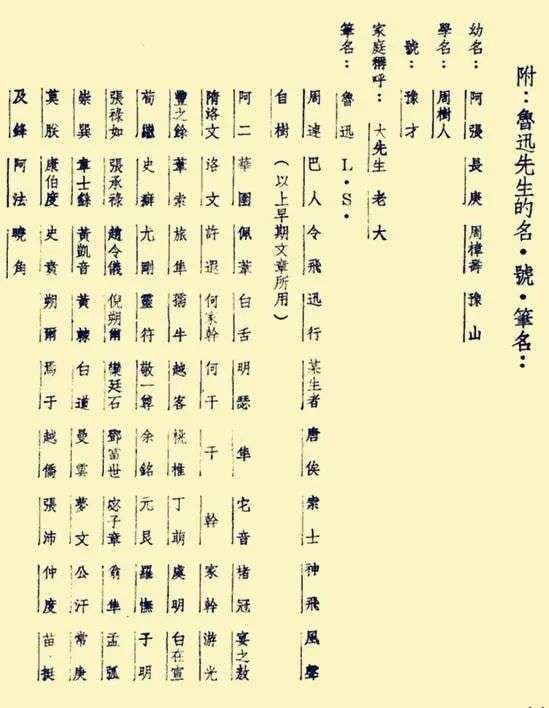 附：魯迅先生的名·號·筆名：
幼名：阿張 長庚 周樟壽 豫山
學名：周樹人
號：豫才
家庭稱呼：大先生 老大
筆名：魯迅 L·S·
周逴 巴人 令飛 迅行 某生者 唐俟 索士 神飛 風聲
自樹（以上早期文章所用）
阿二 華圉 佩葦 白舌 明瑟 隼 宅音 楮冠 宴之敖
隋洛文 洛文 許遐 何家幹 何干 干 幹 家幹 游光
豐之餘 葦索 旅隼 孺牛 越客 桃椎 丁萌 虞明 白在宣
荀繼 史癖 尤剛 靈符 敬一尊 余銘 元艮 羅憮 子明
張祿如 張承祿 趙令儀 倪朔爾 欒廷石 鄧當世 宓子章 翁隼 孟弧
崇巽 韋士繇 黃凱音 黃棘 白道 曼雪 夢文 公汗 常庚
莫朕 康伯度 史賁 朔爾 焉于 越僑 張沛 仲度 苗·挺
及鋒 阿法 曉角